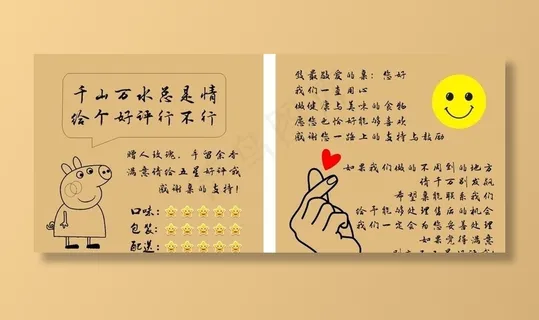 千山万水总是情
给个好评行不行
赠人玫瑰，手留余香
满意请给五星好评哦
感谢亲的支持!
口味:
包装:
配送:
致最敬爱的亲: 您好
我们一直用心
做健康与美味的食物
愿您也恰好能够喜欢
感谢您一路上的支持与鼓励
如果我们做的不周到的地方
请千万别发飙
希望亲能联系我们
给予能够处理售后的机会
我们一定会为您妥善处理
如果觉得满意